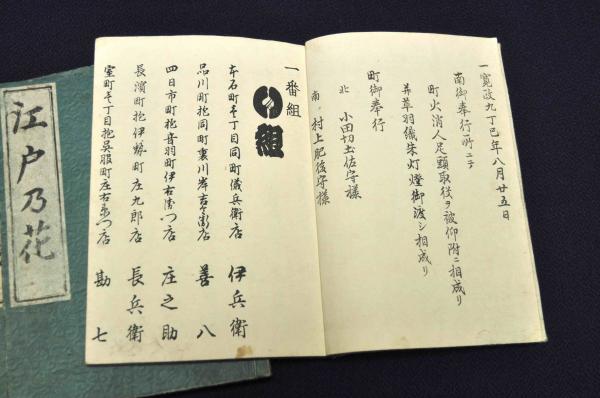 一寛政九丁巳年八月廿五日
南御奉行所ニテ
町火消人足頭取役ヲ被仰附ニ相成り
并革羽織朱灯燈御渡シ相成り
町御奉行
北 小田切土佐守様
南 村上肥後守様
一番組
い組
本石町壱丁目同町儀兵衛店 伊兵衛
品川町抱同町裏川岸吉兵衛店 善八
四日市町抱音羽町伊右衛門店 庄之助
長濱町抱伊勢町庄九郎店 長兵衛
室町壱丁目抱呉服町庄右衛門店 勘七
江戸乃花